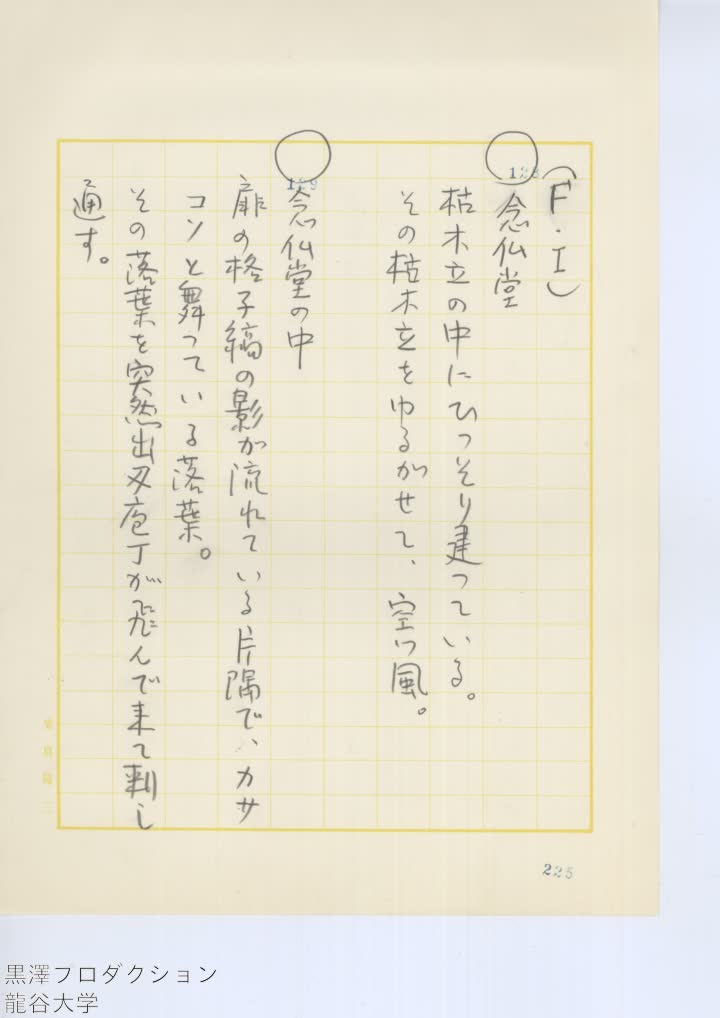 (F・I)
128
○念仏堂
枯木立の中にひっそり建っている。
その枯木立をゆるがせて、空ッ風。
129
○念仏堂の中
扉の格子縞の影が流れている片隅で、カサ
コソと舞っている落葉。
その落葉を突然出刃庖丁が飛んで来て刺し
通す。
225
黒澤プロダクション
龍谷大学